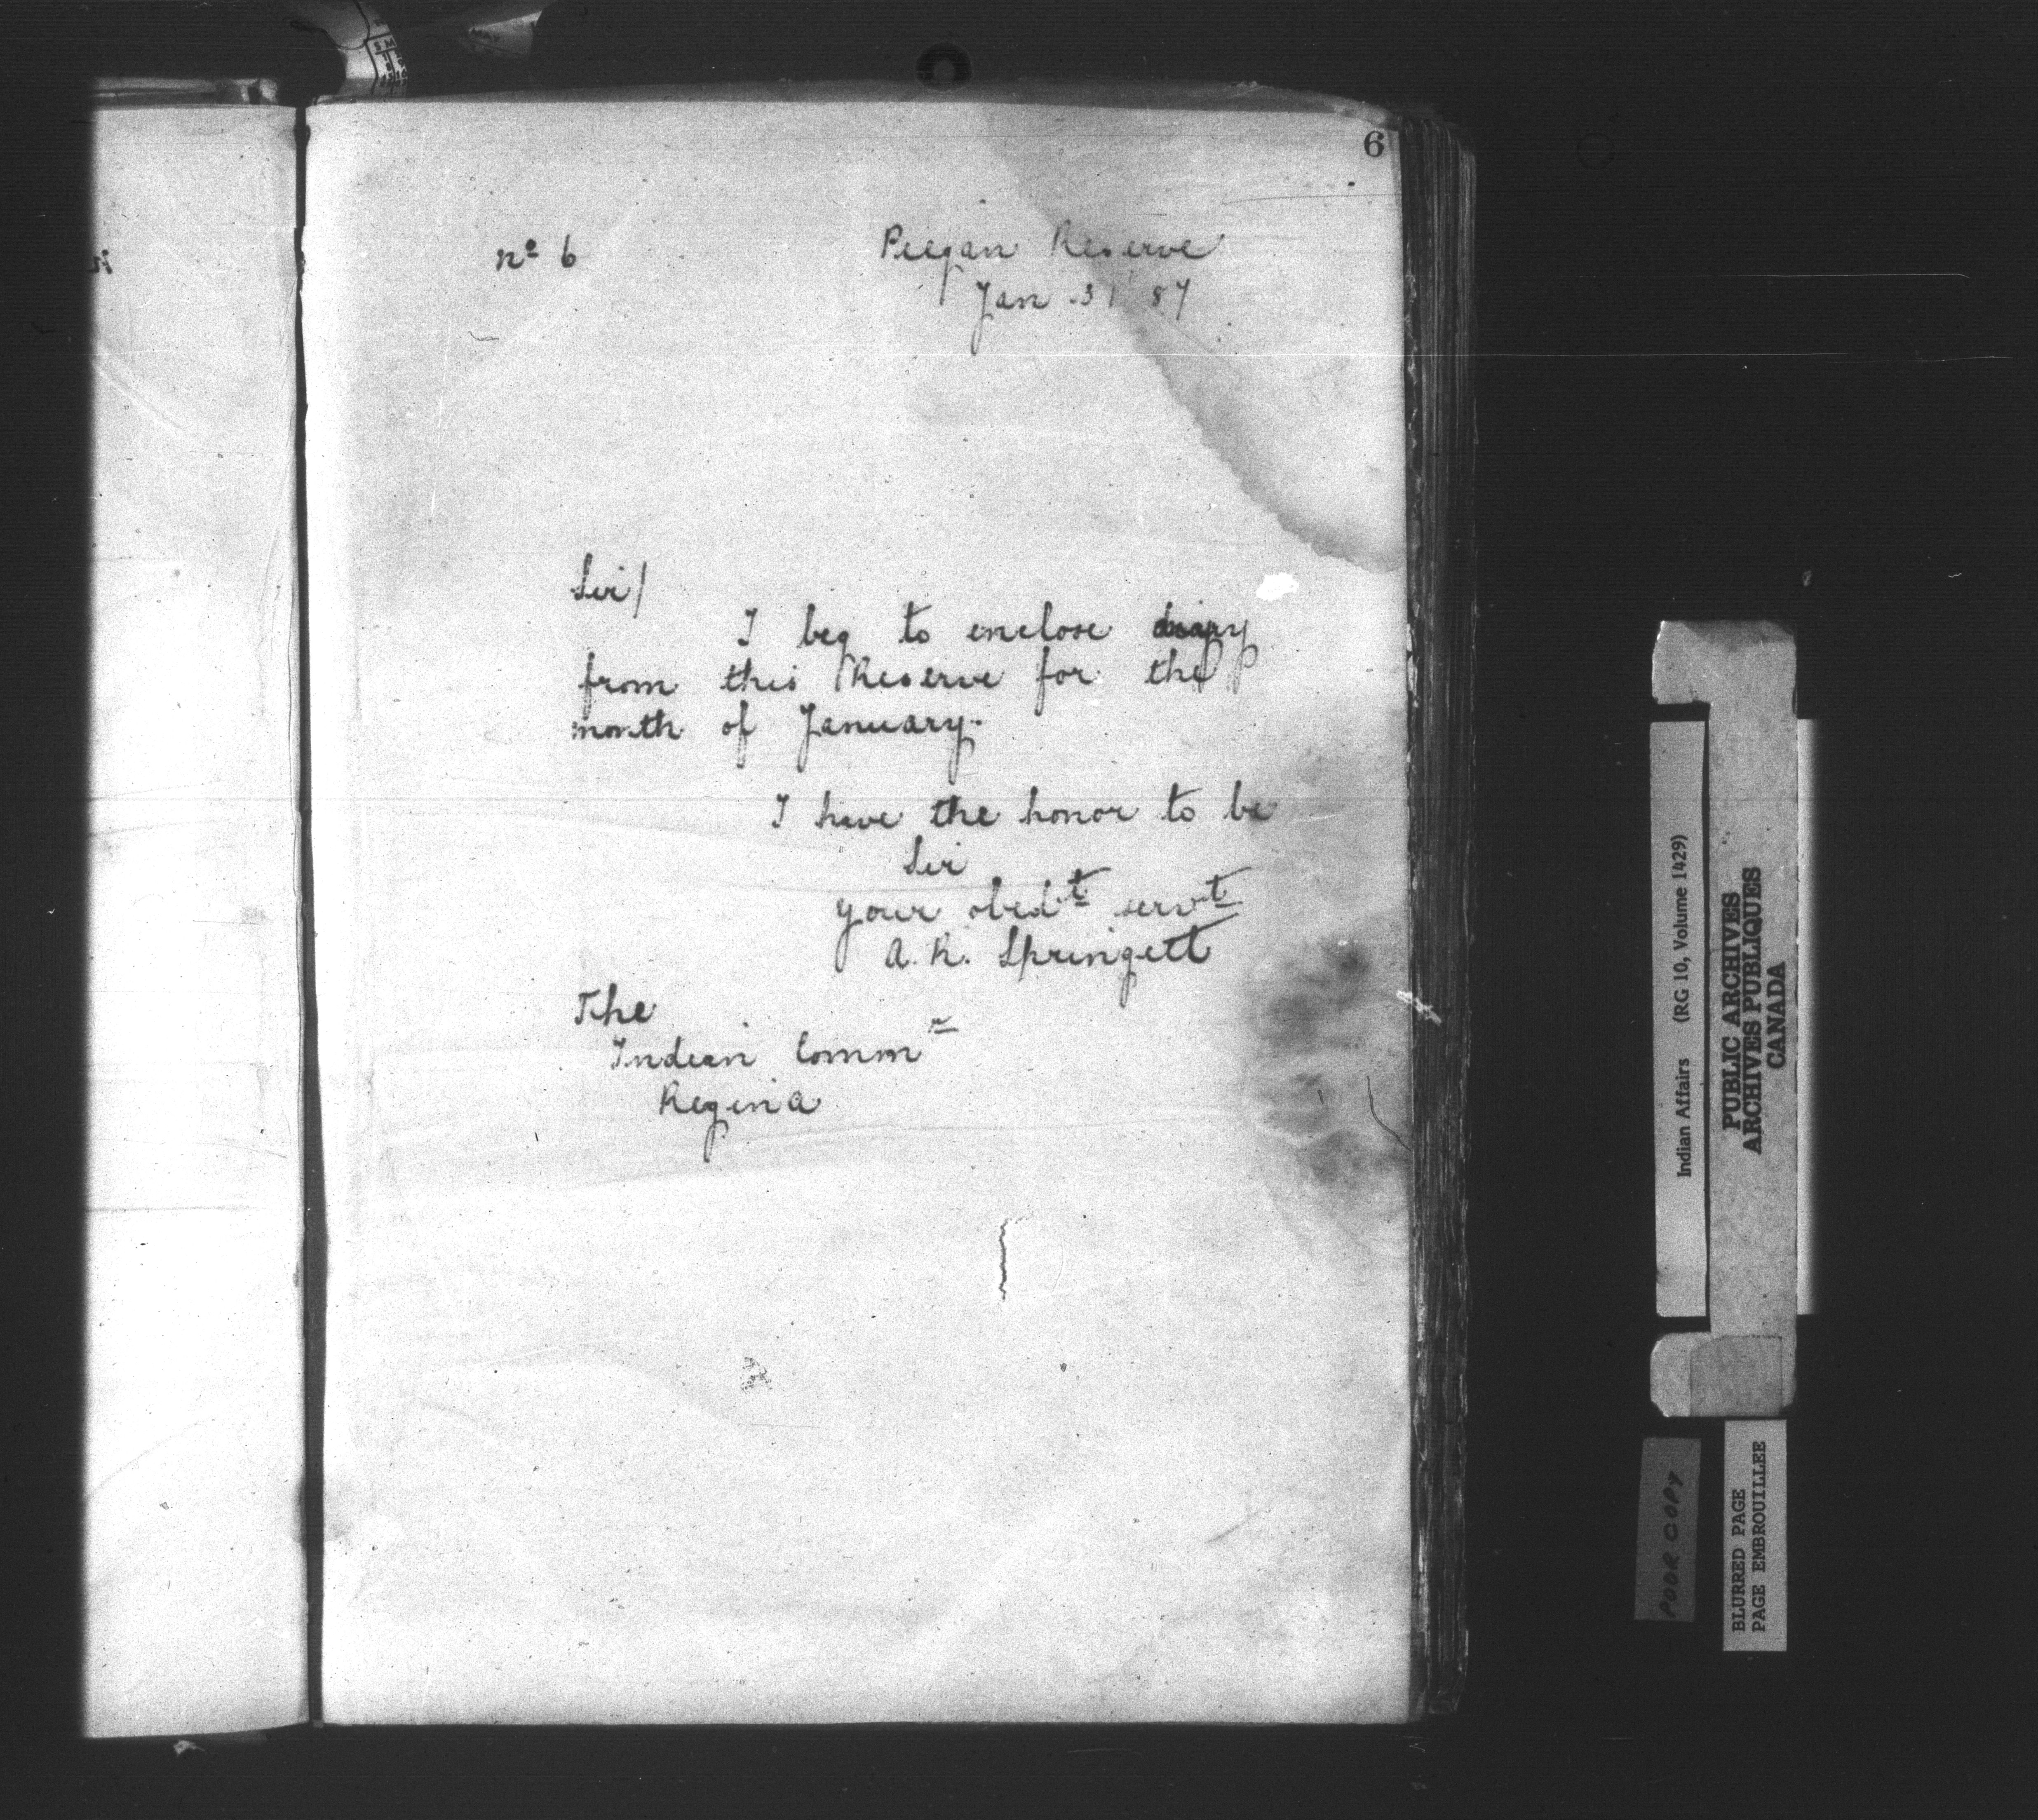 6
No 6
Peegan Reserve
Jan 31 87
Sir/
I beg to enclose diary
from this Reserve for the
month of January.
I have the honor to be
Sir
your obedt servt
A. R. Springett
The
Indian Commr
Regina
Indian Affairs (RG 10, Volume 1429)
PUBLIC ARCHIVES
ARCHIVES PUBLIQUES
CANADA
POOR COPY
BLURRED PAGE
PAGE EMBROUILLEE